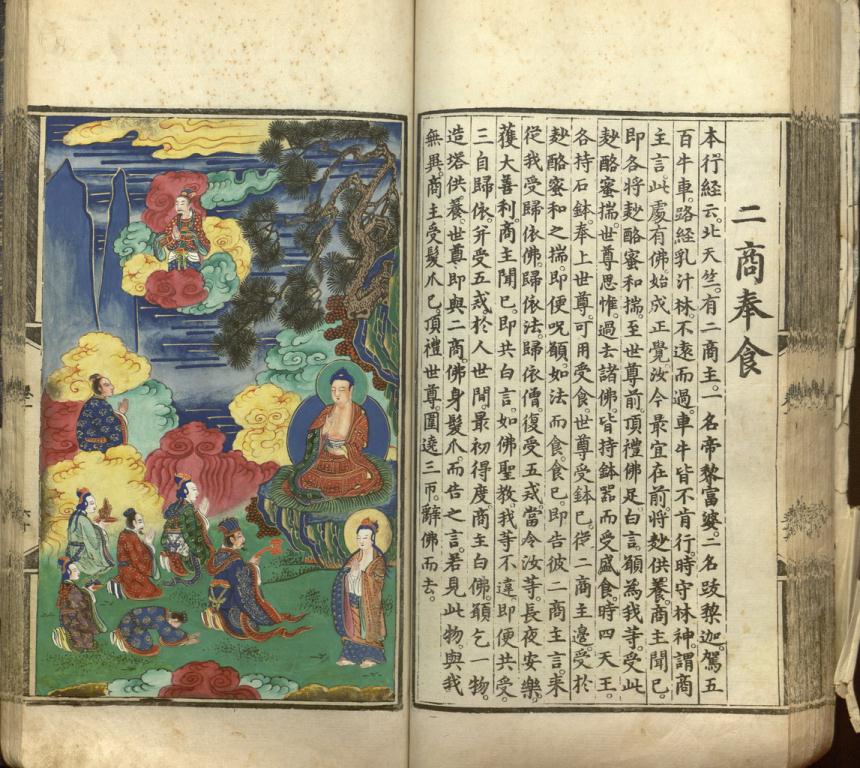 二商奉食
本行経云。北天竺。有二商主。一名帝棃富婆。二名跂棃迦。駕五
百牛車。路經乳汁林。不遠而過。車牛皆不肯行。時守林神。謂商
主言。此處有佛。始成正覺。汝今最宜在前。將麨供養。商主聞已。
即各将麨酪蜜和揣。至世尊前。頂禮佛足。白言。願為我等。受此
麨酪蜜揣。世尊思惟。過去諸佛。皆持鉢器。而受盛食。時四天王。
各持石鉢。奉上世尊。可用受食。世尊受鉢已。從二商主邊。受於
麨酪蜜和之揣。即便呪願。如法而食。食已。即告彼二商主言。来
從我受歸依佛。歸依法。歸依僧。復受五戒。當令汝等。長夜安樂。
獲大善利。商主聞已。即共白言。如佛聖教。我等不違。即便共受。
三自歸依。并受五戒。於人世間。最初得度。商主白佛。願乞一物。
造塔供養。世尊即與二商。佛身髮爪。而告之言。若見此物。與我
無異。商主受髮爪已。頂禮世尊。圍遶三帀。辭佛而去。